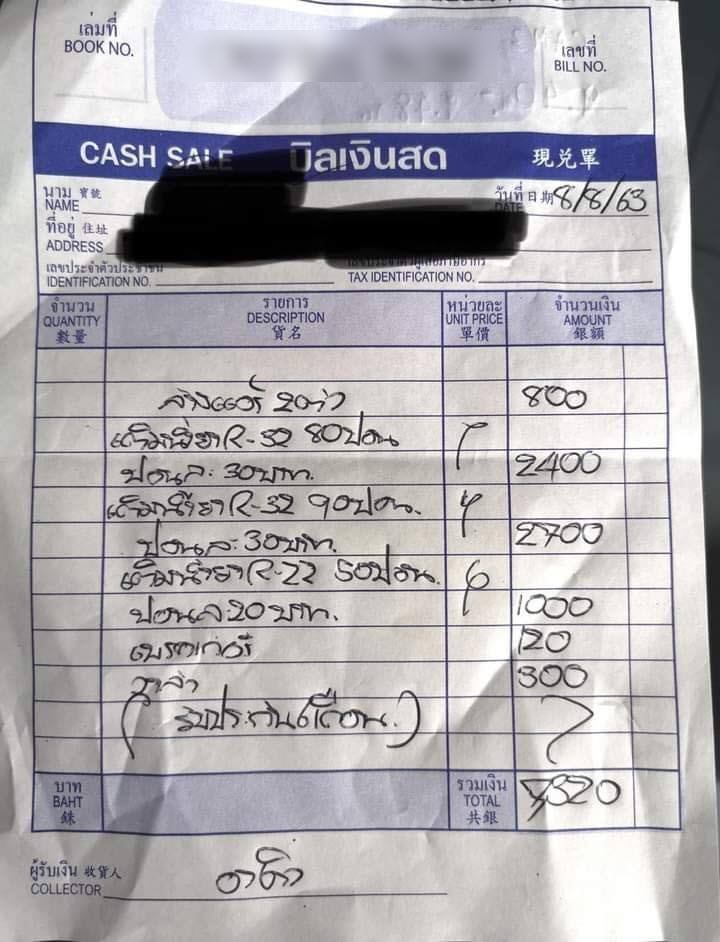 เล่มที่
BOOK NO.
เลขที่
BILL NO.
CASH SALE บิลเงินสด 現兌單
นาม 寶號
NAME
วันที่ 日期 8/8/63
DATE
ที่อยู่ 住址
ADDRESS
เลขประจำตัวประชาชน
IDENTIFICATION NO.
เลขประจำตัวผู้เสียภาษีอากร
TAX IDENTIFICATION NO.
จำนวน รายการ หน่วยละ จำนวนเงิน
QUANTITY DESCRIPTION UNIT PRICE AMOUNT
數量 貨名 單價 銀額
ล้างแอร์ 2ตัว 800
เติมน้ำยา R-32 80ปอน
ปอนละ 30บาท. 2400
เติมน้ำยา R-32 90ปอน.
ปอนละ 30บาท. 2700
เติมน้ำยา R-22 50ปอน.
ปอนละ 20บาท. 1000
เบรกเกอร์ 120
300
(รับประกัน 6เดือน.)
บาท รวมเงิน
BAHT TOTAL 7,320
銖 共銀
ผู้รับเงิน 收貨人
COLLECTOR